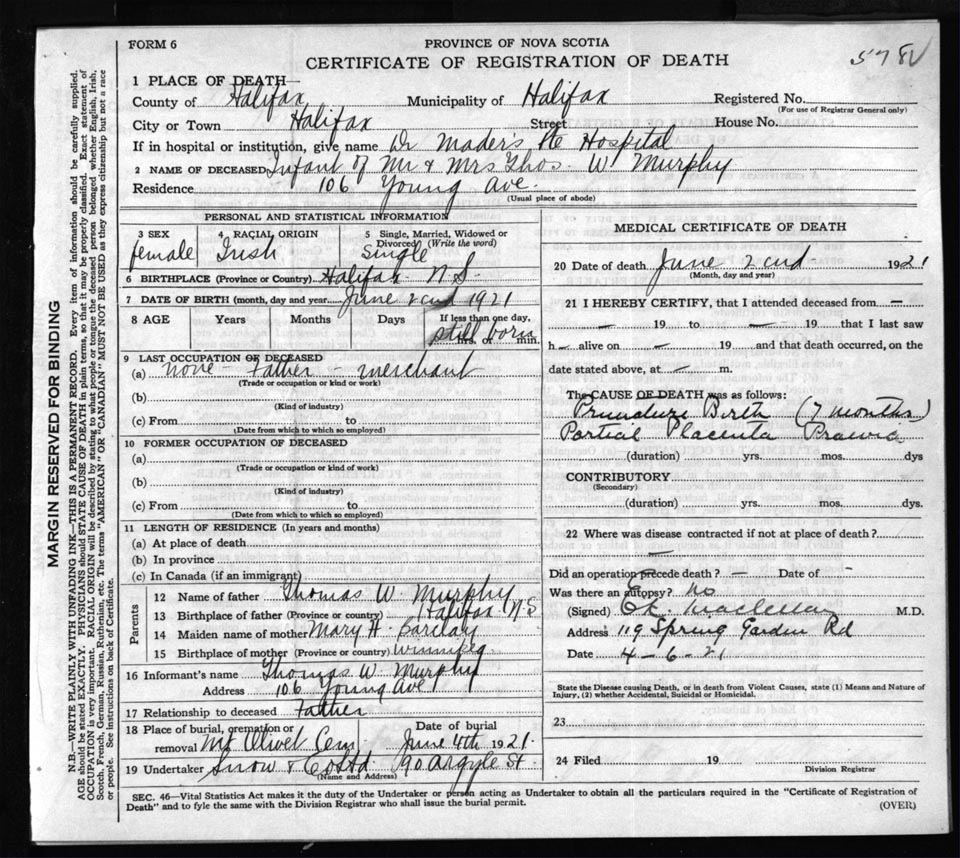 FORM 6
PROVINCE OF NOVA SCOTIA
CERTIFICATE OF REGISTRATION OF DEATH
1 PLACE OF DEATH—
County of Halifax Municipality of Halifax Registered No.
(For use of Registrar General only)
City or Town Halifax Street House No.
If in hospital or institution, give name Dr Mader's Pte Hospital
2 NAME OF DECEASED Infant of Mr & Mrs Thos. W. Murphy
Residence 106 Young Ave.
(Usual place of abode)
PERSONAL AND STATISTICAL INFORMATION
3 SEX female
4 RACIAL ORIGIN Irish
5 Single, Married, Widowed or Divorced (Write the word) Single
6 BIRTHPLACE (Province or Country) Halifax N.S
7 DATE OF BIRTH (month, day and year) June 2nd 1921
8 AGE Years Months Days If less than one day,
still born
hrs. or min.
9 LAST OCCUPATION OF DECEASED
(a) none - Father - merchant
(Trade or occupation or kind or work)
(b)
(Kind of industry)
(c) From to
(Date from which to which so employed)
10 FORMER OCCUPATION OF DECEASED
(a)
(Trade or occupation or kind or work)
(b)
(Kind of industry)
(c) From to
(Date from which to which so employed)
11 LENGTH OF RESIDENCE (In years and months)
(a) At place of death
(b) In province
(c) In Canada (if an immigrant)
Parents
12 Name of father Thomas W Murphy
13 Birthplace of father (Province or country) Halifax N.S
14 Maiden name of mother Mary H. Barclay
15 Birthplace of mother (Province or country) Winnipeg.
16 Informant's name Thomas W. Murphy
Address 106 Young Ave
17 Relationship to deceased Father
18 Place of burial, cremation or removal Mt Olivet Cem Date of burial June 4th 1921.
19 Undertaker Snow & Co Ltd 90 Argyle St.
(Name and Address)
MEDICAL CERTIFICATE OF DEATH
20 Date of death June 2nd 1921
(Month, day and year)
21 I HEREBY CERTIFY, that I attended deceased from —
— 19 to — 19 that I last saw
h — alive on — 19 and that death occurred, on the
date stated above, at — m.
The CAUSE OF DEATH was as follows:
Premature Birth (7 months)
Partial Placenta Praevia
(duration) yrs. mos. dys
CONTRIBUTORY
(Secondary)
(duration) yrs. mos. dys.
22 Where was disease contracted if not at place of death?
—
Did an operation precede death? — Date of —
Was there an autopsy? no
(Signed) M.D.
Address 119 Spring Garden Rd
Date 4-6-21
State the Disease causing Death, or in death from Violent Causes, state (1) Means and Nature of
Injury, (2) whether Accidental, Suicidal or Homicidal.
23
24 Filed 19
Division Registrar
SEC. 46—Vital Statistics Act makes it the duty of the Undertaker or person acting as Undertaker to obtain all the particulars required in the "Certificate of Registration of
Death" and to fyle the same with the Division Registrar who shall issue the burial permit.
(OVER)
MARGIN RESERVED FOR BINDING
N.B.—WRITE PLAINLY WITH UNFADING INK—THIS IS A PERMANENT RECORD. Every item of information should be carefully supplied.
AGE should be stated EXACTLY. PHYSICIANS should STATE CAUSE OF DEATH in plain terms, so that it may be properly classified. Exact statement of
OCCUPATION is very important. RACIAL ORIGIN will be described by stating to what people or tongue the deceased person belonged whether English, Irish,
Scotch, French, German, Russian, Ruthenian, etc. The terms "AMERICAN" OR "CANADIAN" MUST NOT BE USED as they express citizenship but not a race
or people. See instructions on back of Certificate.